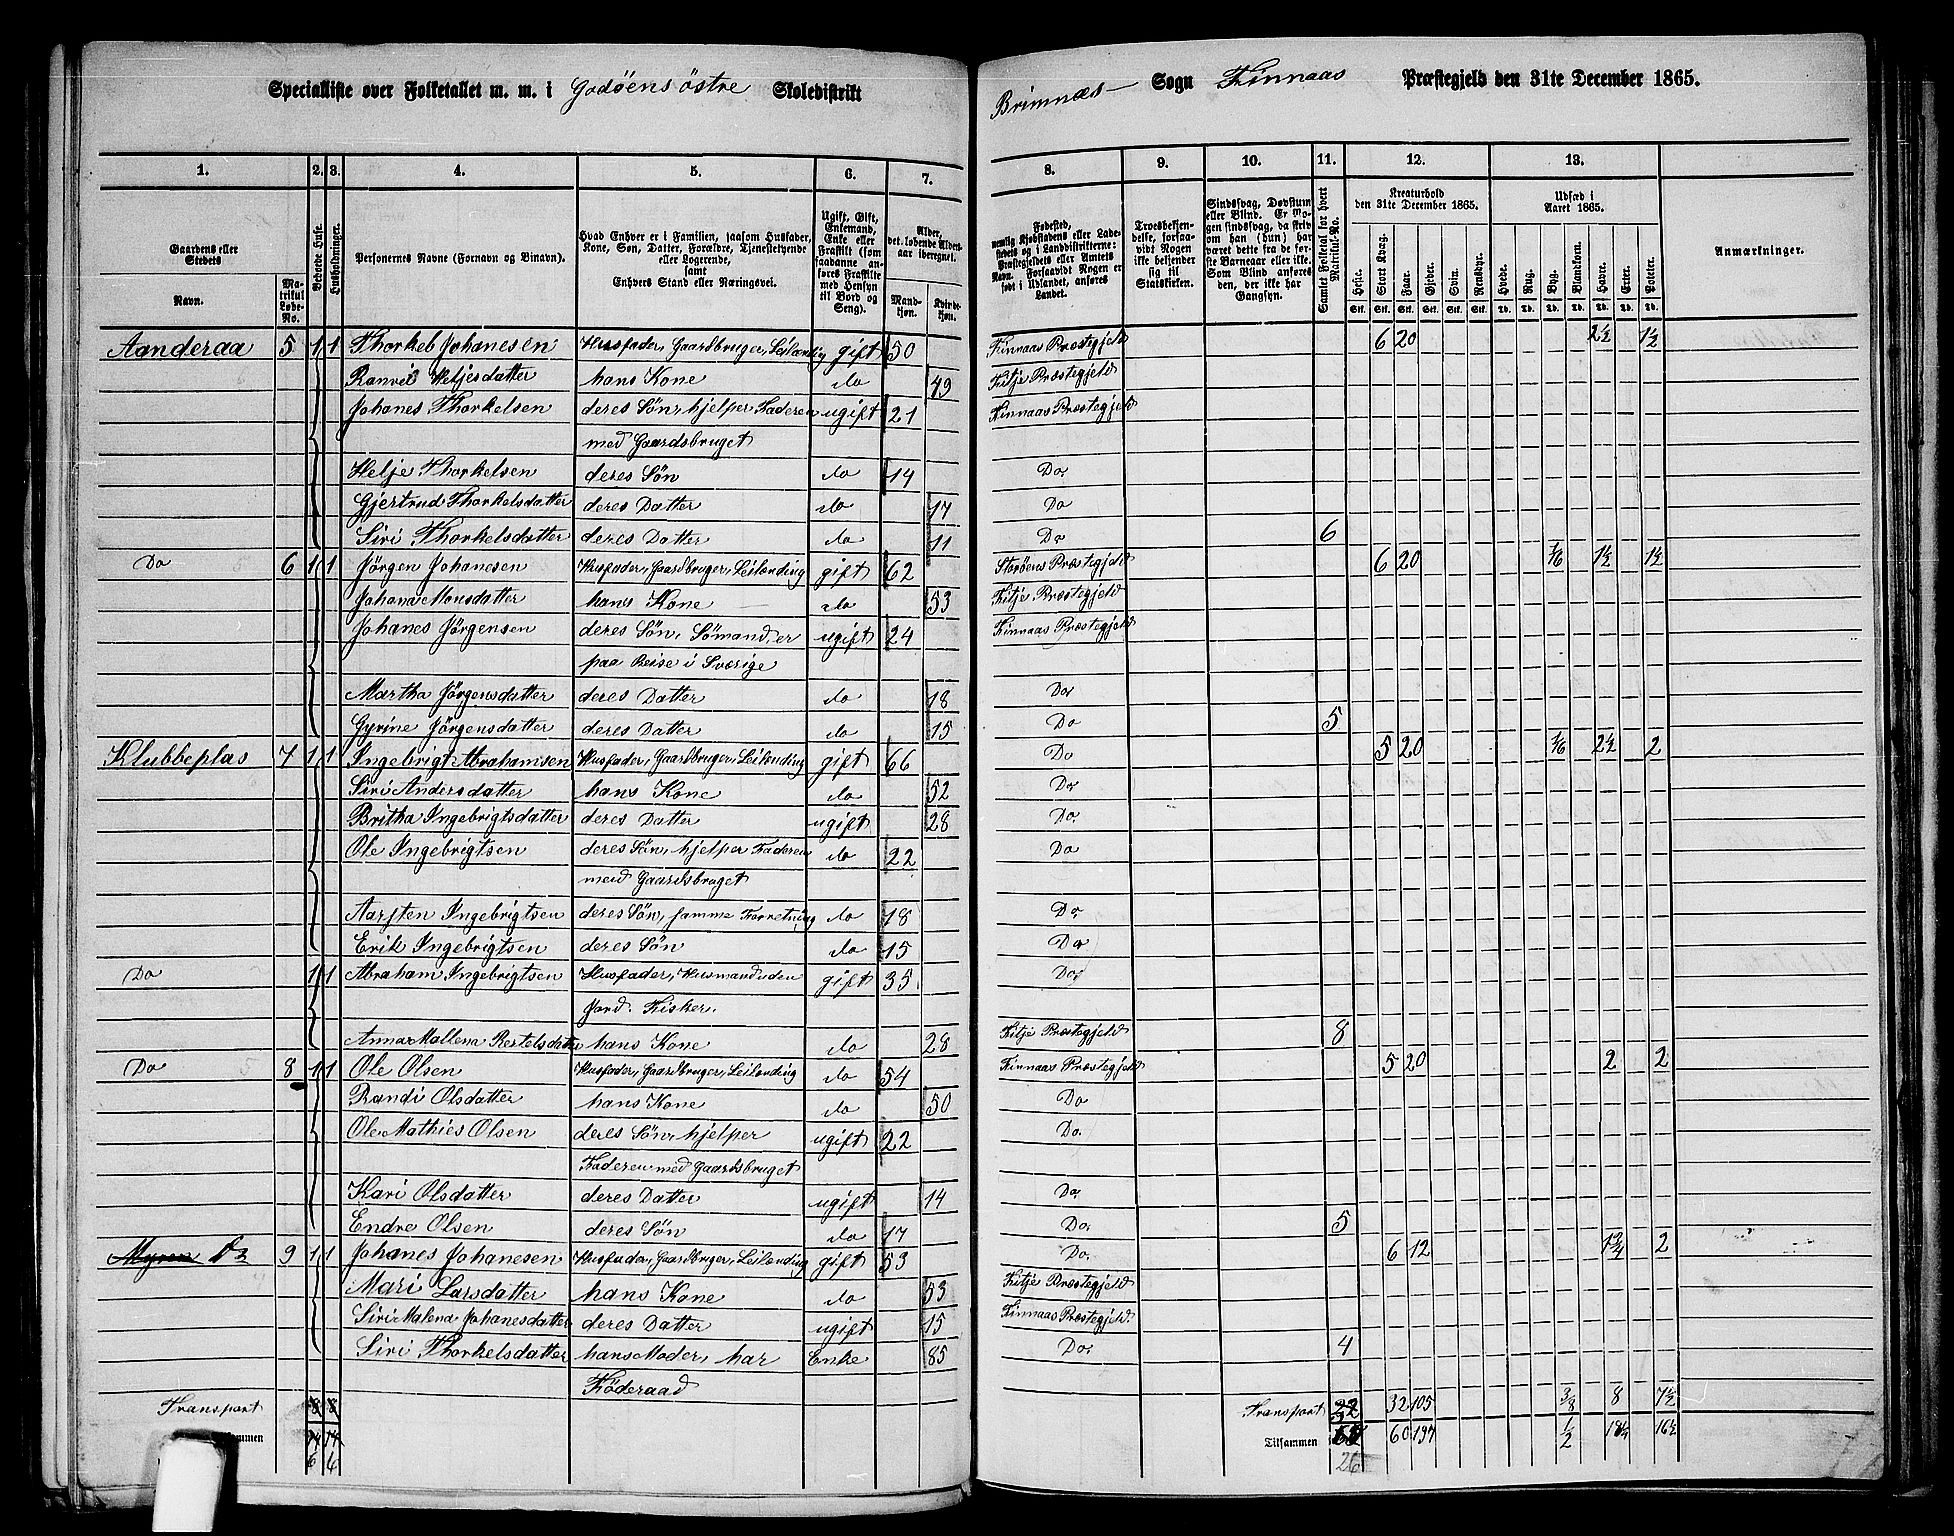 Specialliste over Folketallet m. m. i Godöens östre Skoledistrikt
Brimnæs Sogn Finnaas Præstegjeld den 31te December 1865.
1. 2. 3. 4. 5. 6. 7. 8. 9. 10. 11. 12. 13.
Gaardens eller Stedets Navn. Matrikul Løbe-No. Beboede Huse. Husholdninger. Personernes Navne (Fornavn og Binavn). Hvad Enhver er i Familien, saasom Husfader, Kone, Søn, Datter, Forældre, Tjenestetyende eller Logerende, samt Enhvers Stand eller Næringsvei. Ugift, Gift, Enkemand, Enke eller Fraskilt (som saadanne anføres Fraskilte med Hensyn til Bord og Seng). Alder, det løbende Alders-aar iberegnet. Mandkjøn. Kvindekjøn.
Fødested, Troesbekjendelse, forsaavidt Nogen ikke bekjender sig til Statskirken. Sindssvag, Døvstum eller Blind. Samlet Folketal for hvert Matrikul-No. Kreaturhold den 31te December 1865. Udsæd i Aaret 1865. Anmærkninger.
Heste. Stort Kvæg. Faar. Gjeder. Sviin. Rensdyr. Hvede. Rug. Byg. Blandkorn. Havre. Erter. Poteter.
Aanderaa 5 1 1 Thorkeb Johanesen Husfader, Gaardbruger, Leilænding gift 50 Finnaas Præstegjeld 6 20 2½ 1½
Ranvei Heljesdatter hans Kone do 49 Fitje Præstegjeld
Johanes Thorkelsen deres Søn, hjelper Faderen ugift 21 Finnaas Præstegjeld
med Gaardsbruget
Helje Thorkelsen deres Søn do 14 Do
Gjertrud Thorkelsdatter deres Datter do 17 Do
Siri Thorkelsdatter deres Datter do 11 Do 6
Do 6 1 1 Jörgen Johanesen Husfader, Gaardbruger, Leilænding gift 62 Storöens Præstegjeld 6 20 1/16 1½ 1½
Johana Monsdatter hans Kone do 53 Fitje Præstegjeld
Johanes Jörgensen deres Søn, Sömand, er ugift 24 Finnaas Præstegjeld
paa Reise i Sverige
Martha Jörgensdatter deres Datter do 18 Do
Gyrine Jörgensdatter deres Datter do 15 Do 5
Klubbeplas 7 1 1 Ingebrigt Abrahamsen Husfader, Gaardbruger, Leilænding gift 66 Do 5 20 1/16 2½ 2
Siri Andersdatter hans Kone do 52 Do
Britha Ingebrigtsdatter deres Datter ugift 28 Do
Ole Ingebrigtsen deres Søn, hjelper Faderen do 22 Do
med Gaardsbruget
Aarsten Ingebrigtsen deres Søn, samme Forretning do 18 Do
Erik Ingebrigtsen deres Søn do 15 Do
Do 1 1 Abraham Ingebrigtsen Husfader, Husmand uden gift 35 Do
Jord. Fisker.
Anna Mallena Restelsdatter hans Kone do 28 Fitje Præstegjeld 8
Do 8 1 1 Ole Olsen Husfader, Gaardbruger, Leilænding do 54 Finnaas Præstegjeld 5 20 2 2
Randi Olsdatter hans Kone do 50 Do
Ole Mathies Olsen deres Søn, hjelper ugift 22 Do
Faderen med Gaardsbruget
Kari Olsdatter deres Datter ugift 14 Do
Endre Olsen deres Søn do 17 Do 5
Myren Do 9 1 1 Johanes Johanesen Husfader, Gaardbruger, Leilænding gift 53 Do 6 12 2
Mari Larsdatter hans Kone do 53 Fitje Præstegjeld
Siri Malena Johanesdatter deres Datter ugift 15 Finnaas Præstegjeld
Siri Thorkelsdatter hans Moder, har Enke 85 Do 4
Föderaad
Transport 8 8 Transport 32 105 3/8 8 7½
Tilsammen 14 14 Tilsammen 60 197 ½ 16½
6 6 26